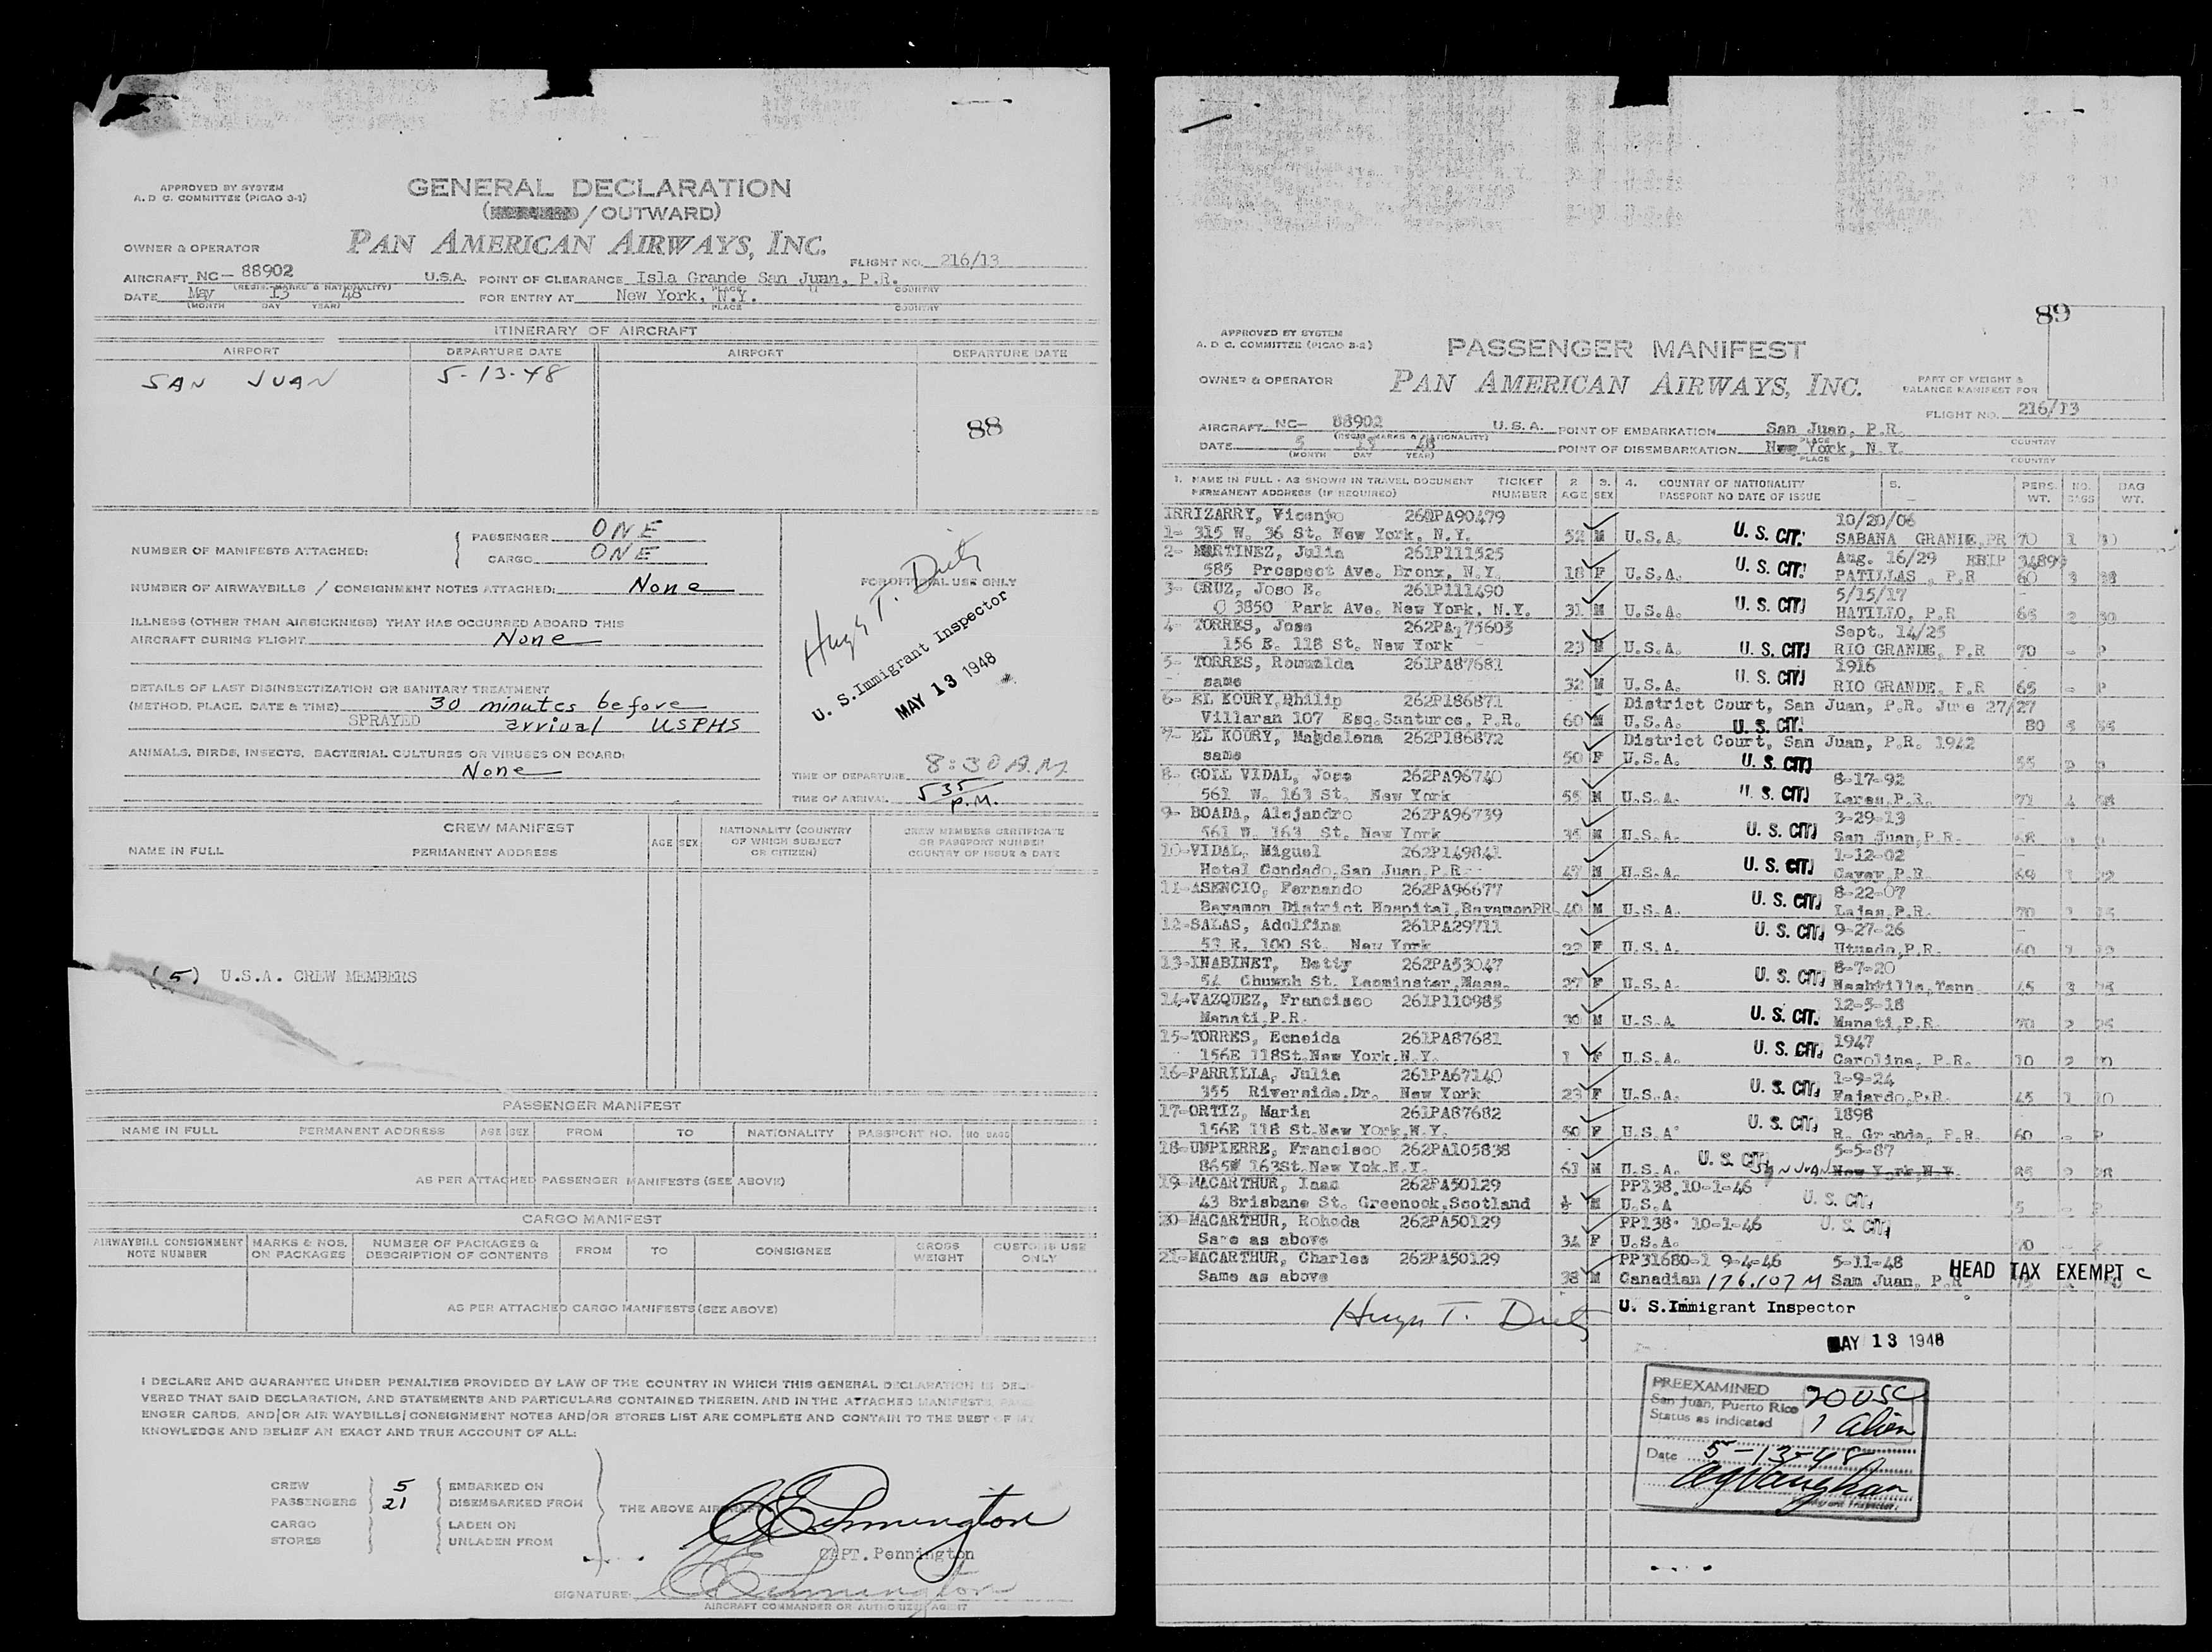 APPROVED BY SYSTEM
A. D C. COMMITTEE (PICAO 3-1)
GENERAL DECLARATION
( / OUTWARD)
PAN AMERICAN AIRWAYS, INC.
OWNER & OPERATOR
FLIGHT NO. 216/13
AIRCRAFT NC- 88902 U.S.A. POINT OF CLEARANCE Isla Grande San Juan, P.R.
(REGIS. MARKS & NATIONALITY) PLACE COUNTRY
DATE May 13 48 FOR ENTRY AT New York, N.Y.
(MONTH DAY YEAR) PLACE COUNTRY
ITINERARY OF AIRCRAFT
AIRPORT DEPARTURE DATE AIRPORT DEPARTURE DATE
SAN JUAN 5-13-48
88
NUMBER OF MANIFESTS ATTACHED: PASSENGER ONE
CARGO ONE
NUMBER OF AIRWAYBILLS / CONSIGNMENT NOTES ATTACHED: None
ILLNESS (OTHER THAN AIRSICKNESS) THAT HAS OCCURRED ABOARD THIS
AIRCRAFT DURING FLIGHT None
DETAILS OF LAST DISINSECTIZATION OR SANITARY TREATMENT
(METHOD, PLACE, DATE & TIME) 30 minutes before
SPRAYED arrival USPHS
ANIMALS, BIRDS, INSECTS, BACTERIAL CULTURES OR VIRUSES ON BOARD:
None
FOR OFFICIAL USE ONLY
Hugh T. Dietz
U. S. Immigrant Inspector
MAY 13 1948
TIME OF DEPARTURE 8:30 A.M.
TIME OF ARRIVAL 535 P.M.
CREW MANIFEST
NAME IN FULL PERMANENT ADDRESS AGE SEX NATIONALITY (COUNTRY OF WHICH SUBJECT OR CITIZEN) CREW MEMBERS CERTIFICATE OR PASSPORT NUMBER COUNTRY OF ISSUE & DATE
(5) U.S.A. CREW MEMBERS
PASSENGER MANIFEST
NAME IN FULL PERMANENT ADDRESS AGE SEX FROM TO NATIONALITY PASSPORT NO. NO BAGS
AS PER ATTACHED PASSENGER MANIFESTS (SEE ABOVE)
CARGO MANIFEST
AIRWAYBILL CONSIGNMENT NOTE NUMBER MARKS & NOS. ON PACKAGES NUMBER OF PACKAGES & DESCRIPTION OF CONTENTS FROM TO CONSIGNEE GROSS WEIGHT CUSTOMS USE ONLY
AS PER ATTACHED CARGO MANIFESTS (SEE ABOVE)
I DECLARE AND GUARANTEE UNDER PENALTIES PROVIDED BY LAW OF THE COUNTRY IN WHICH THIS GENERAL DECLARATION IS DELI
VERED THAT SAID DECLARATION, AND STATEMENTS AND PARTICULARS CONTAINED THEREIN, AND IN THE ATTACHED MANIFESTS, PASS
ENGER CARDS, AND/OR AIR WAYBILLS/CONSIGNMENT NOTES AND/OR STORES LIST ARE COMPLETE AND CONTAIN TO THE BEST OF MY
KNOWLEDGE AND BELIEF AN EXACT AND TRUE ACCOUNT OF ALL:
CREW 5 EMBARKED ON
PASSENGERS 21 DISEMBARKED FROM THE ABOVE AIRCRAFT
CARGO LADEN ON
STORES UNLADEN FROM
CAPT. Pennington
SIGNATURE:
AIRCRAFT COMMANDER OR AUTHORIZED AGENT
89
APPROVED BY SYSTEM
A. D C. COMMITTEE (PICAO 3-2)
PASSENGER MANIFEST
OWNER & OPERATOR
PAN AMERICAN AIRWAYS, INC.
PART OF WEIGHT &
BALANCE MANIFEST FOR
FLIGHT NO. 216/13
AIRCRAFT NC- 88902 U.S.A. POINT OF EMBARKATION San Juan, P.R.
(REGIS MARKS & NATIONALITY) PLACE COUNTRY
DATE 5 13 48 POINT OF DISEMBARKATION New York, N.Y.
(MONTH DAY YEAR) PLACE COUNTRY
1. NAME IN FULL - AS SHOWN IN TRAVEL DOCUMENT TICKET 2 3. 4. COUNTRY OF NATIONALITY 5. PERS. NO. BAG
PERMANENT ADDRESS (IF REQUIRED) NUMBER AGE SEX PASSPORT NO DATE OF ISSUE WT. BAGS WT.
IRRIZARRY, Vicente 262PA90479 10/20/06
1- 315 W. 36 St. New York, N.Y. 52 M U.S.A. U. S. CIT. SABANA GRANDE, PR 70 1
2- MARTINEZ, Julia 261P111525 Aug. 16/29 34899
585 Prospect Ave. Bronx, N.Y. 18 F U.S.A. U. S. CIT. PATILLAS, P.R 60 3
3- CRUZ, Jose E. 261P111490 5/15/17
3850 Park Ave. New York, N.Y. 31 M U.S.A. U. S. CIT. HATILLO, P.R 65 2 30
4- TORRES, Jose 262PA175603 Sept. 14/25
156 E. 118 St. New York 23 M U.S.A. U. S. CIT. RIO GRANDE, P.R 70 -
5- TORRES, Romualda 261PA87681 1916
same 32 M U.S.A. U. S. CIT. RIO GRANDE, P.R 65 -
6- EL KOURY, Philip 262P186871 District Court, San Juan, P.R. June 27/27
Villaran 107 Esq. Santurce, P.R. 60 M U.S.A. U. S. CIT. 80
7- EL KOURY, Magdalena 262P186872 District Court, San Juan, P.R. 1942
same 50 F U.S.A. U. S. CIT. 55
8- COLL VIDAL, Jose 262PA96740 8-17-92
561 W. 163 St. New York 55 M U.S.A. U. S. CIT. Lares, P.R. 71
9- BOADA, Alejandro 262PA96739 3-29-13
561 W. 163 St. New York 35 M U.S.A. U. S. CIT. San Juan, P.R. 68
10-VIDAL, Miguel 262P149841 1-12-02
Hotel Condado, San Juan, P.R. 47 M U.S.A. U. S. CIT. Cayey, P.R. 69 1 22
11-ASENCIO, Fernando 262PA96677 8-22-07
Bayamon District Hospital, BayamonPR 40 M U.S.A. U. S. CIT. Lajas, P.R. 70 1
12-SALAS, Adolfina 261PA29711 9-27-26
53 E. 100 St. New York 22 F U.S.A. U. S. CIT. Utuado, P.R. 60
13-INABINET, Betty 262PA53047 8-7-20
54 Chumnh St. Leominster, Mass. 27 F U.S.A. U. S. CIT. Nashville, Tenn 45 3
14-VAZQUEZ, Francisco 261P110985 12-5-18
Manati, P.R. 30 M U.S.A. U. S. CIT. Manati, P.R. 70 2
15-TORRES, Eeneida 261PA87681 1947
156E 118St. New York, N.Y. 1 F U.S.A. U. S. CIT. Carolina, P.R. 10 2
16-PARRILLA, Julia 261PA67140 1-9-24
355 Riverside, Dr. New York 23 F U.S.A. U. S. CIT. Fajardo, P.R. 45 1 10
17-ORTIZ, Maria 261PA87682 1898
156E 118 St. New York, N.Y. 50 F U.S.A. U. S. CIT. R. Grande, P.R. 60 -
18-UMPIERRE, Francisco 262PA105838 5-5-87
865W 163St. New Yok. N.Y. 61 M U.S.A. U. S. CIT. SAN JUAN New York, N.Y. 85 2
19-MACARTHUR, Iaac 262PA50129 PP138. 10-1-46
43 Brisbane St. Greenock, Scotland ½ M U.S.A U. S. CIT. 5 -
20-MACARTHUR, Rohoda 262PA50129 PP138. 10-1-46 U. S. CIT.
Same as above 34 F U.S.A. 70 -
21-MACARTHUR, Charles 262PA50129 PP31680-1 9-4-46 5-11-48
Same as above 38 M Canadian 176.107 M Sam Juan, P.R HEAD TAX EXEMPT C
Hugh T. Dietz U. S. Immigrant Inspector
MAY 13 1948
PREEXAMINED
San Juan, Puerto Rico 20 USC
Status as indicated 1 Alien
Date 5-13-48
Immigrant Inspector.